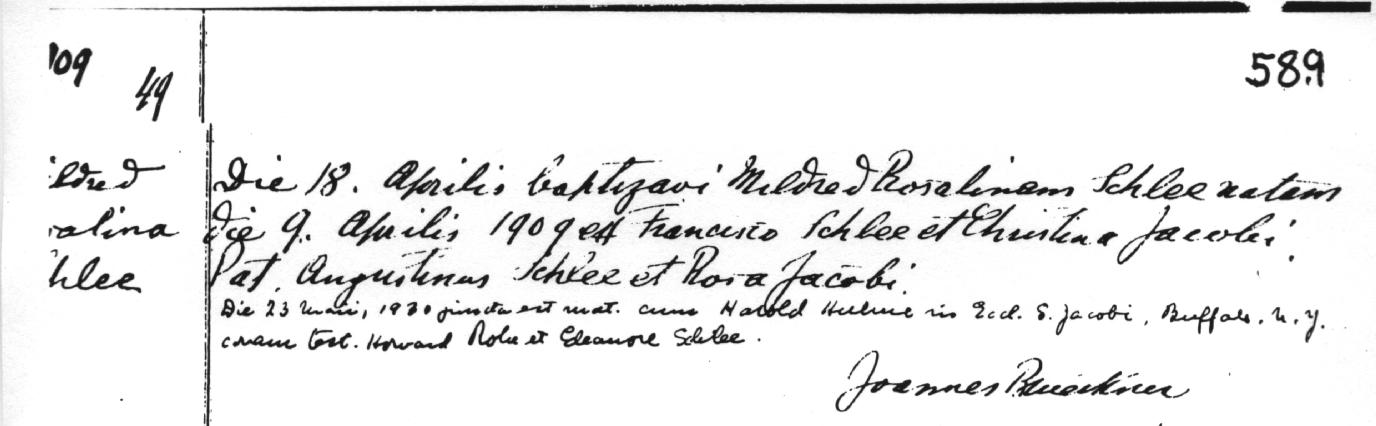 109
49
589
ildred
Die 18. Aprilis baptizavi Mildred Rosalinam Schlee natam
alina
die 9. Aprilis 1909 ex Francisco Schlee et Christina Jacobi
hlee
Pat. Augustinus Schlee et Rosa Jacobi.
Die 23 1930 juncta est mat. cum Harold in Eccl. S. Jacobi, Buffalo, N.Y.
coram test. Howard et Eleanore Schlee.
Joannes Brueckner